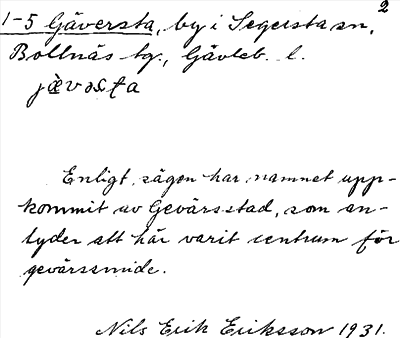 2
1-5 Gäversta, by i Segersta sn,
Bollnäs tg., Gävleb. l.
jä̀vəsta
Enligt sägen har namnet upp-
kommit av Gevärsstad, som an-
tyder att här varit centrum för
gevärssmide.
Nils Erik Eriksson 1931.